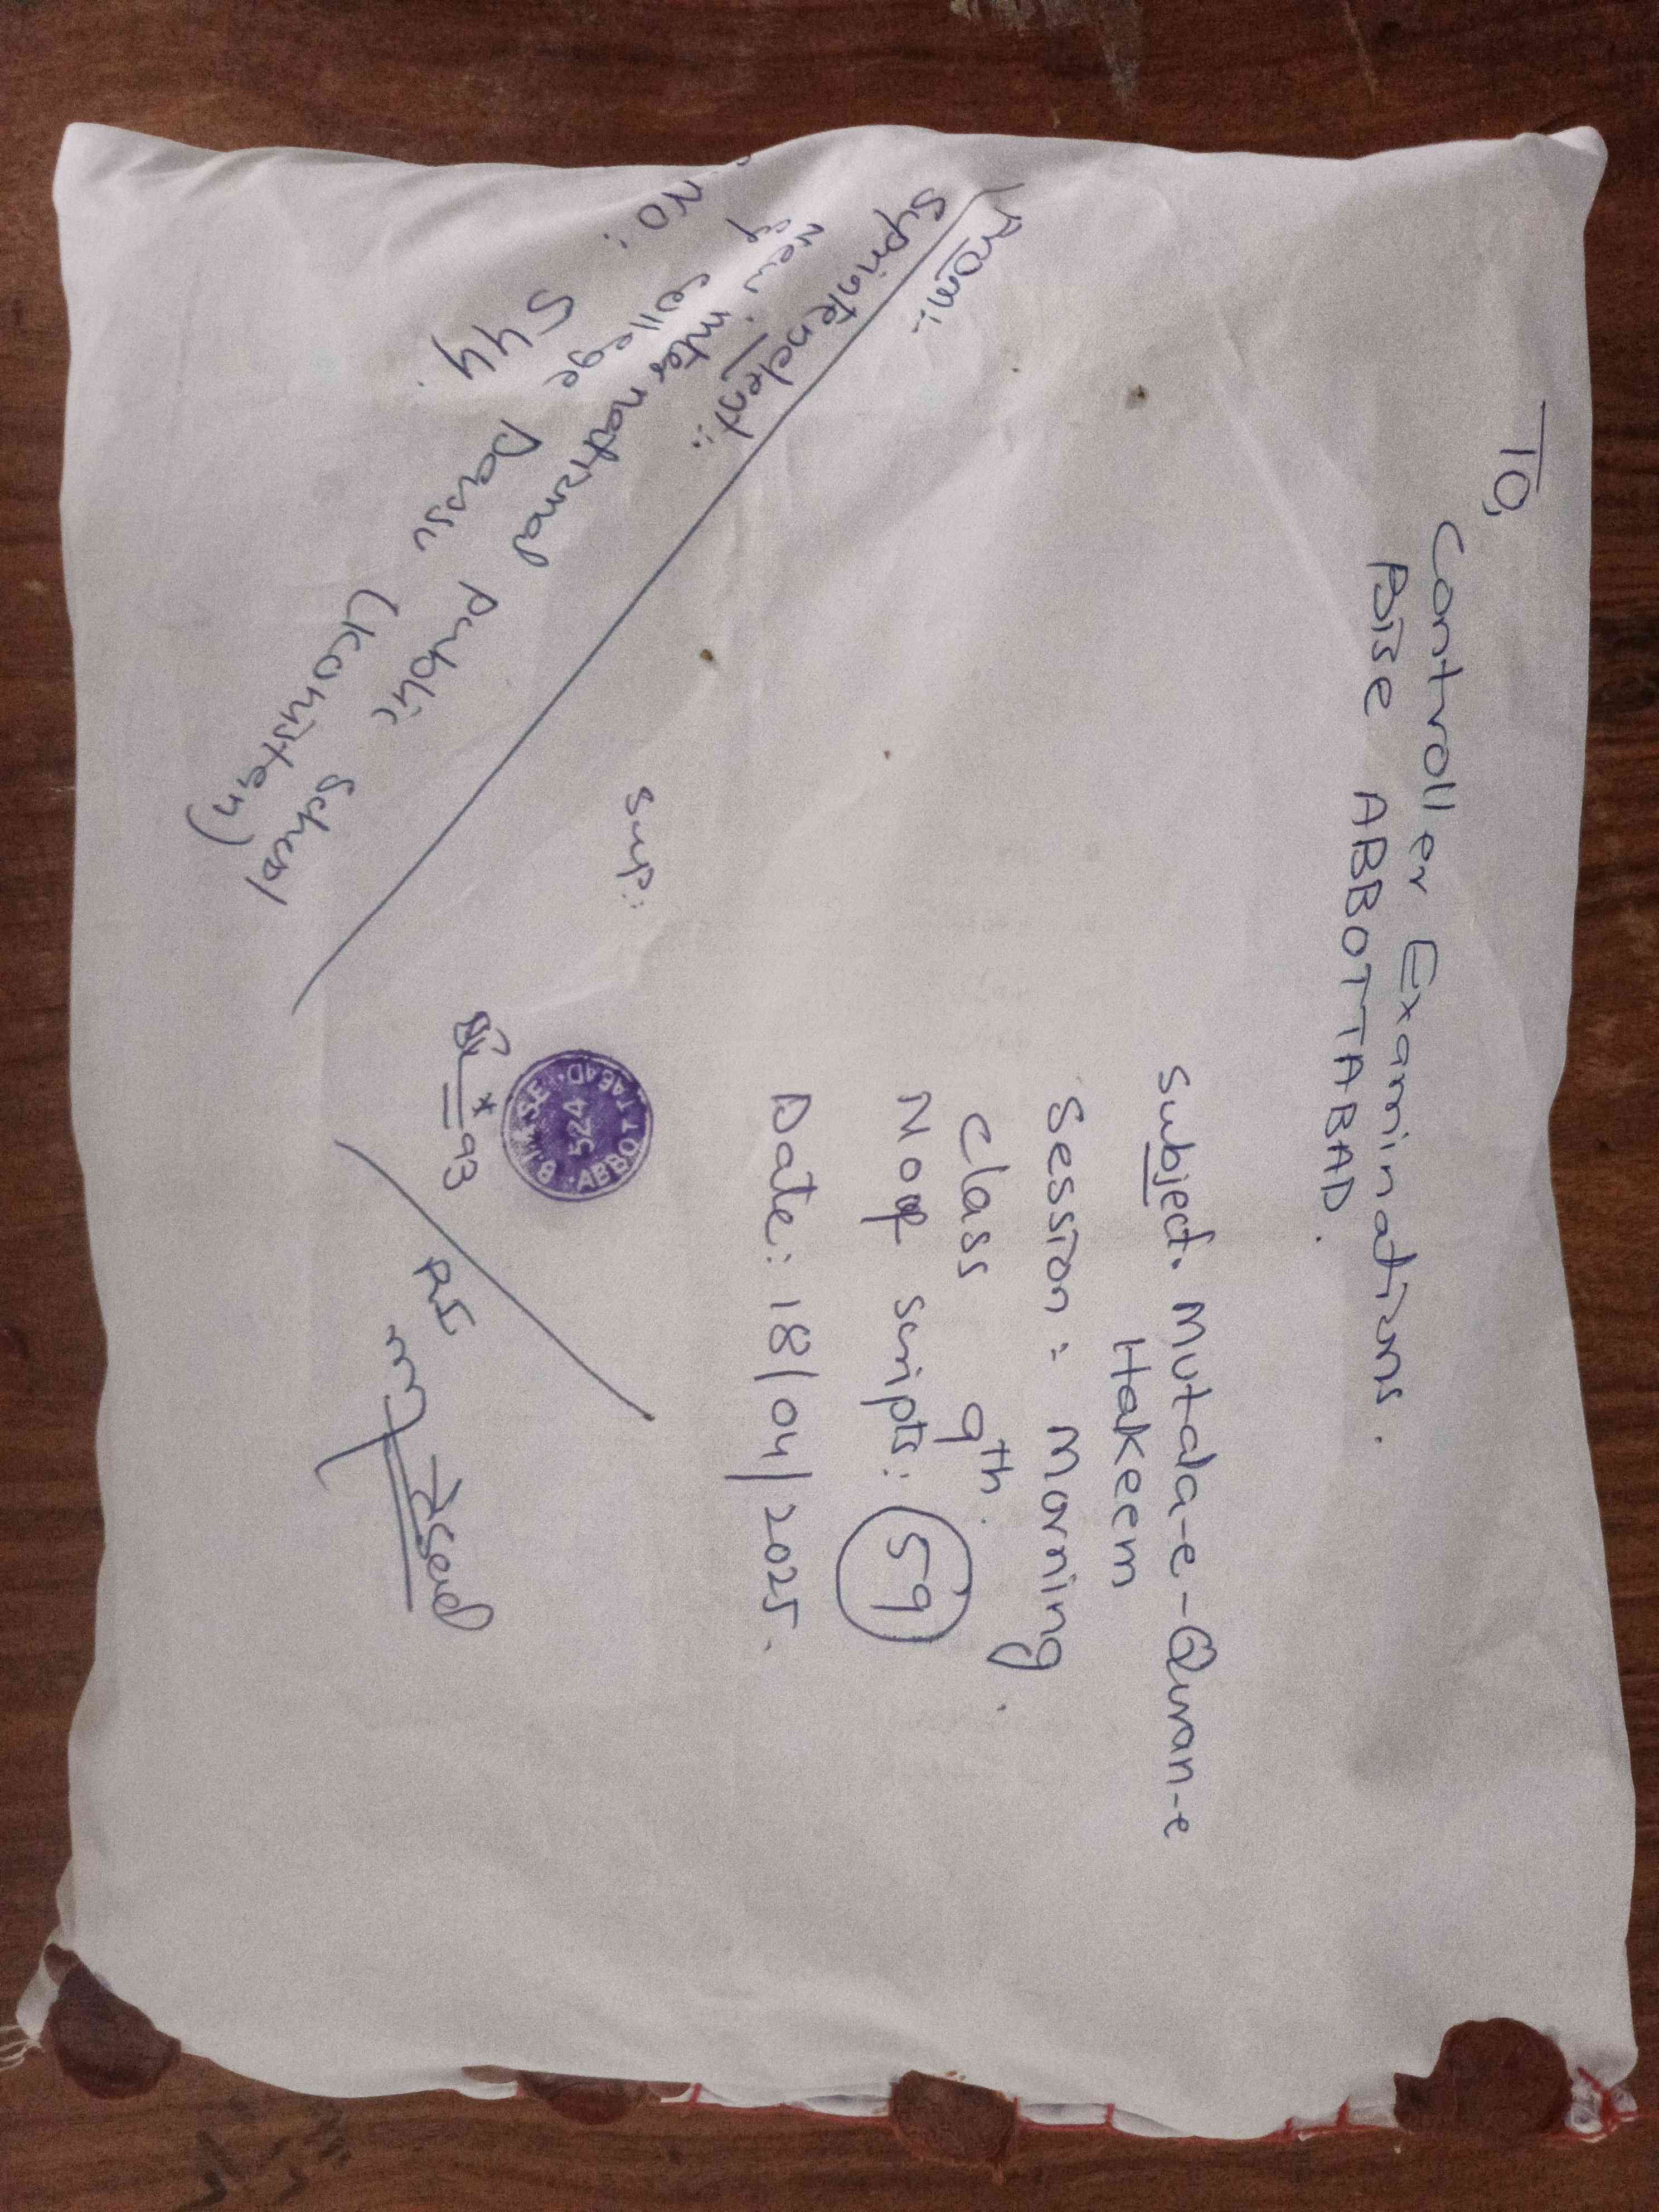 TO,
Controller Examinations.
BISE ABBOTTABAD.
Subject. Mutala-e-Quran-e
Hakeem
Session: Morning
Class 9th.
No of scripts: 59
Date: 18/04/2025.
Sup:
ABBOTTABAD
524
From:-
Suprintendent:-
New international public School
& College Dassu (Kohistan)
No: 544
RI